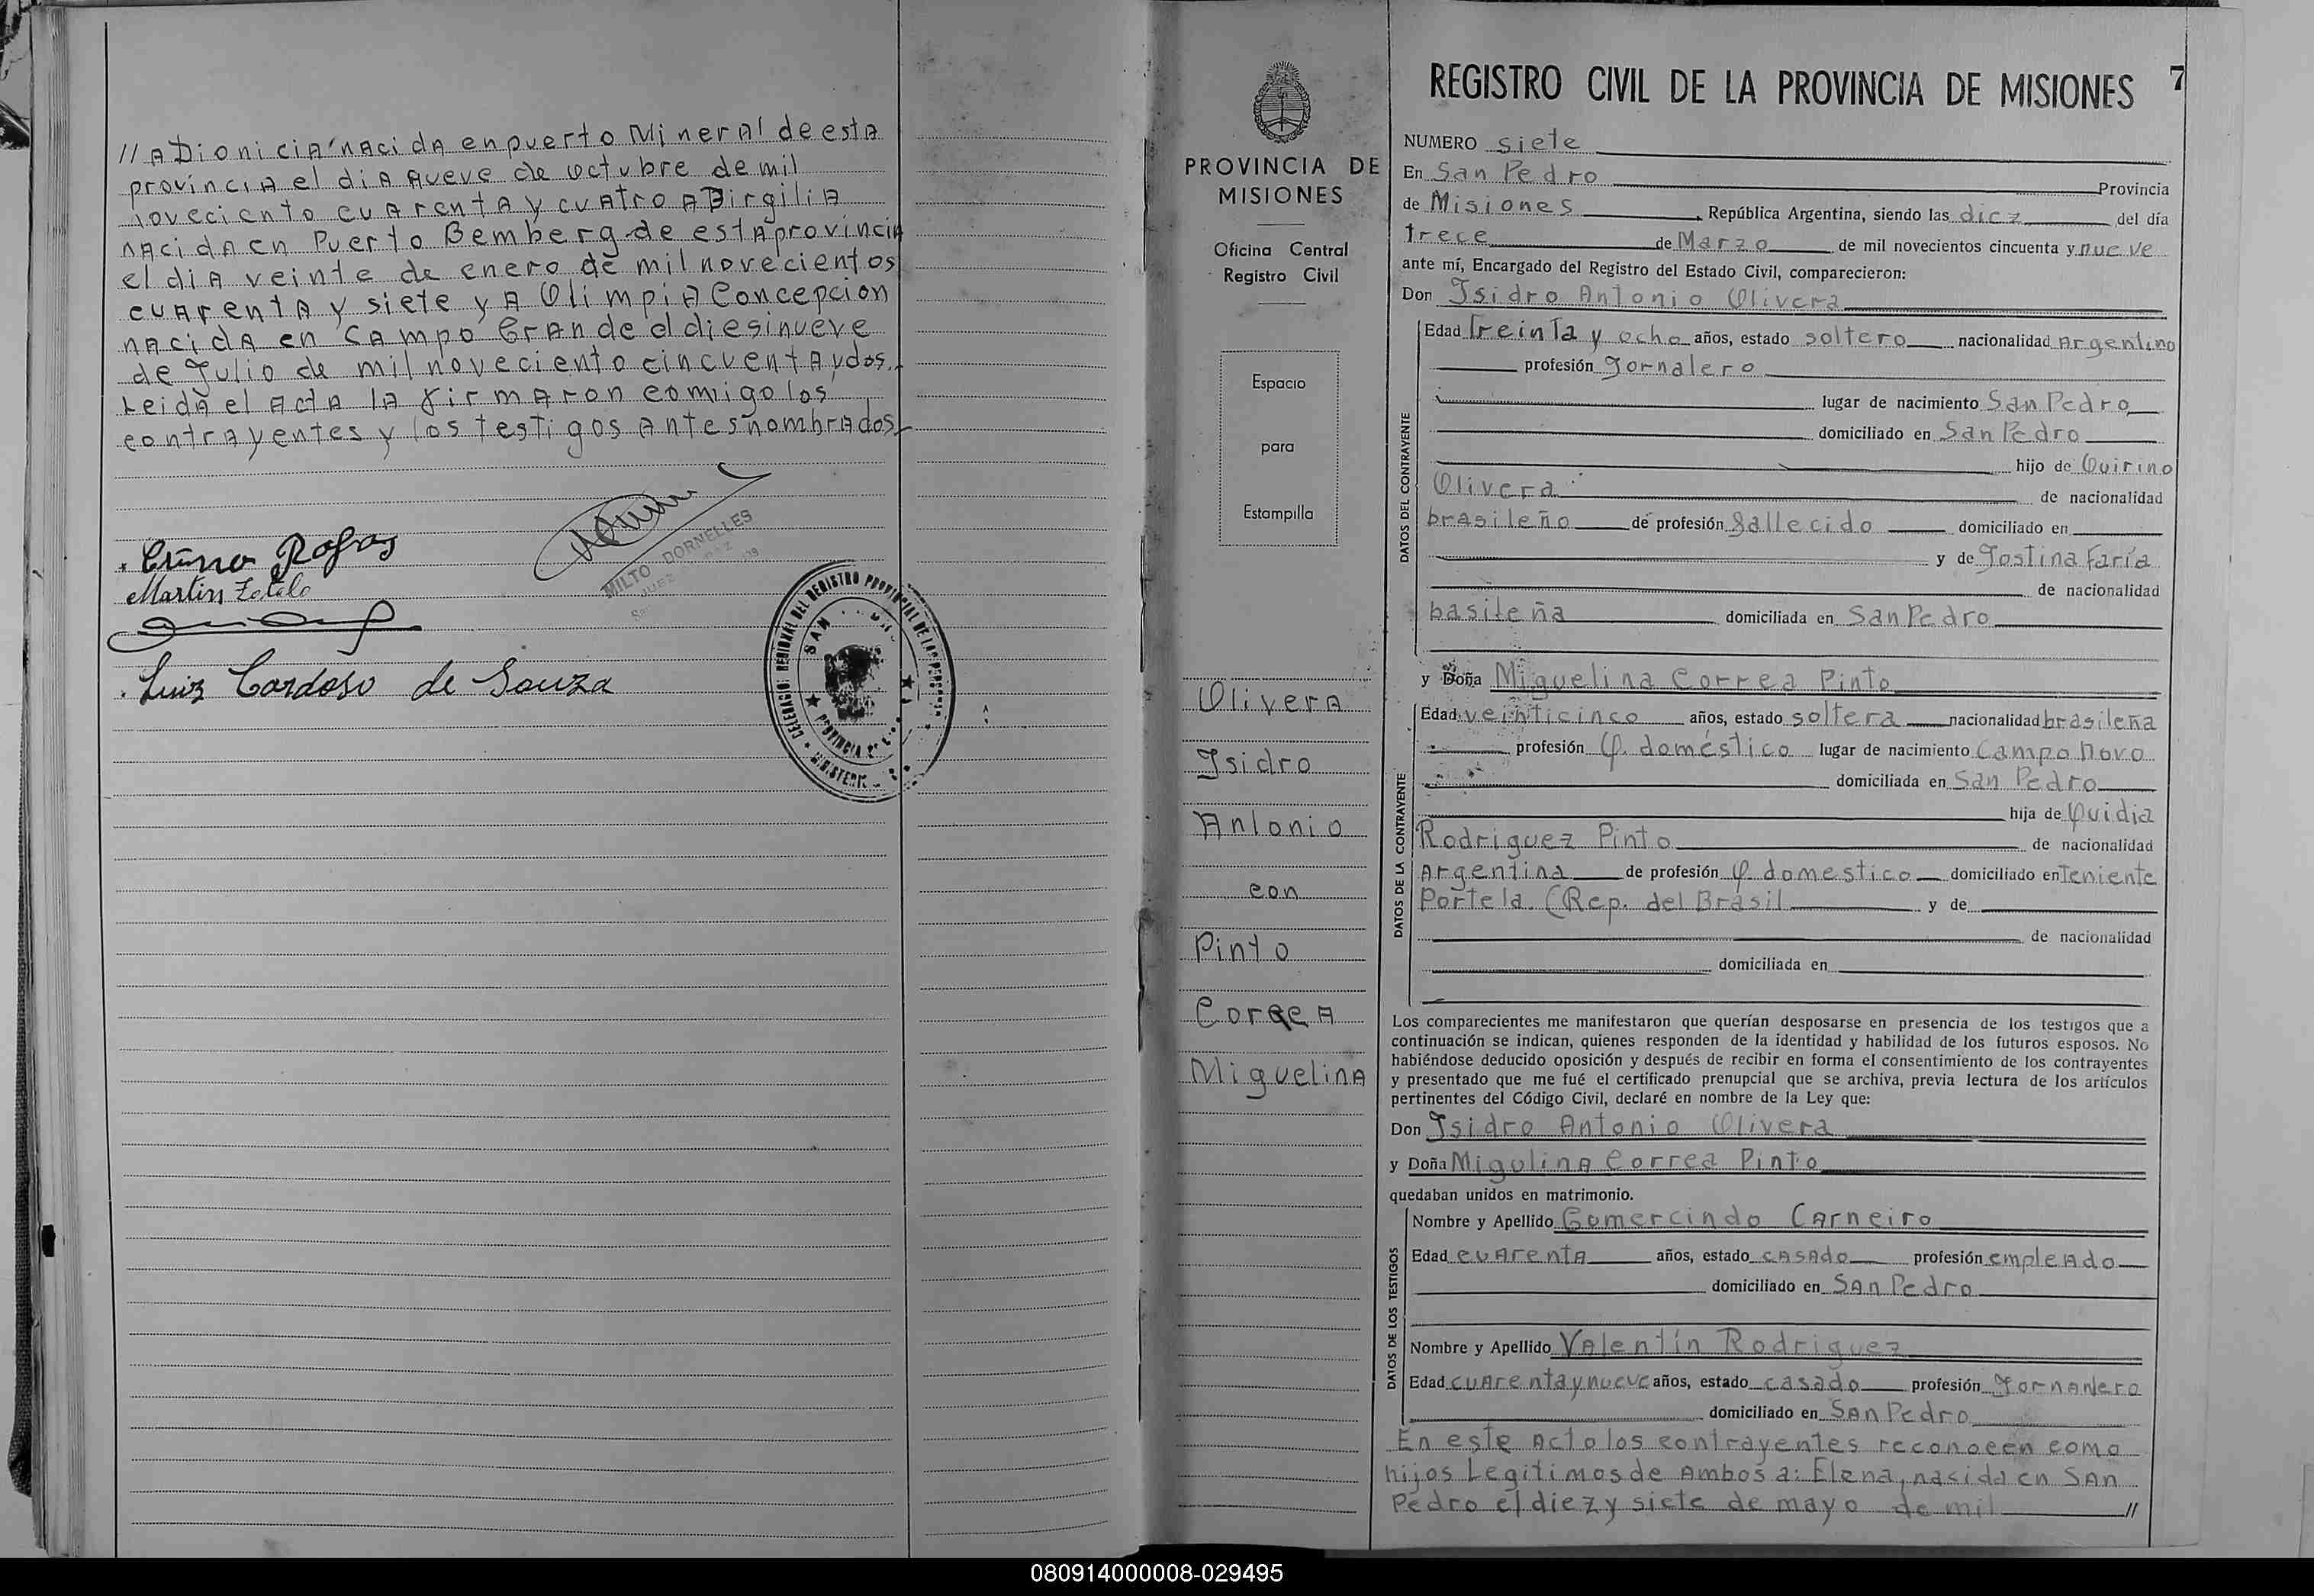 // A Dionicia nacida en puerto Mineral de esta
provincia el dia nueve de octubre de mil
noveciento cuarenta y cuatro A Birgilia
nacida en Puerto Bemberg de esta provincia
el dia veinte de enero de mil novecientos
cuarenta y siete y A Olimpia Concepcion
nacida en Campo Grande el diesinueve
de Julio de mil noveciento cincuenta y dos.
Leida el acta la firmaron comigo los
contrayentes y los testigos antes nombrados
Rojas
Martin Zotelo
MILTO DORNELLES
JUEZ
Luiz Cardoso de Souza
DELEGACION REGIONAL DEL REGISTRO PROVINCIAL DE LAS PERSONAS
SAN
PROVINCIA
PROVINCIA DE
MISIONES
Oficina Central
Registro Civil
Espacio
para
Estampilla
Olivera
Isidro
Antonio
con
Pinto
Correa
Miguelina
REGISTRO CIVIL DE LA PROVINCIA DE MISIONES 7
NUMERO siete
En San Pedro Provincia
de Misiones, República Argentina, siendo las diez del día
trece de Marzo de mil novecientos cincuenta y nueve
ante mí, Encargado del Registro del Estado Civil, comparecieron:
Don Isidro Antonio Olivera
DATOS DEL CONTRAYENTE
Edad treinta y ocho años, estado soltero nacionalidad Argentino
profesión Jornalero
lugar de nacimiento San Pedro
domiciliado en San Pedro
hijo de Quirino
Olivera de nacionalidad
brasileño de profesión fallecido domiciliado en
y de Jostina Faría
de nacionalidad
basileña domiciliada en San Pedro
y Doña Miguelina Correa Pinto
DATOS DE LA CONTRAYENTE
Edad veinticinco años, estado soltera nacionalidad brasileña
profesión Q. doméstico lugar de nacimiento Campo Novo
domiciliada en San Pedro
hija de Quidia
Rodriguez Pinto de nacionalidad
Argentina de profesión Q. domestico domiciliado en Teniente
Portela. (Rep. del Brasil y de
de nacionalidad
domiciliada en
Los comparecientes me manifestaron que querían desposarse en presencia de los testigos que a
continuación se indican, quienes responden de la identidad y habilidad de los futuros esposos. No
habiéndose deducido oposición y después de recibir en forma el consentimiento de los contrayentes
y presentado que me fué el certificado prenupcial que se archiva, previa lectura de los artículos
pertinentes del Código Civil, declaré en nombre de la Ley que:
Don Isidro Antonio Olivera
y Doña Migulina Correa Pinto
quedaban unidos en matrimonio.
DATOS DE LOS TESTIGOS
Nombre y Apellido Gomercindo Carneiro
Edad cuarenta años, estado casado profesión empleado
domiciliado en San Pedro
Nombre y Apellido Valentín Rodriguez
Edad cuarenta y nueve años, estado casado profesión Jornanlero
domiciliado en San Pedro
En este acto los contrayentes reconocen como
hijos Legitimos de Ambos a: Elena, nasida en San
Pedro el diez y siete de mayo de mil //
080914000008-029495